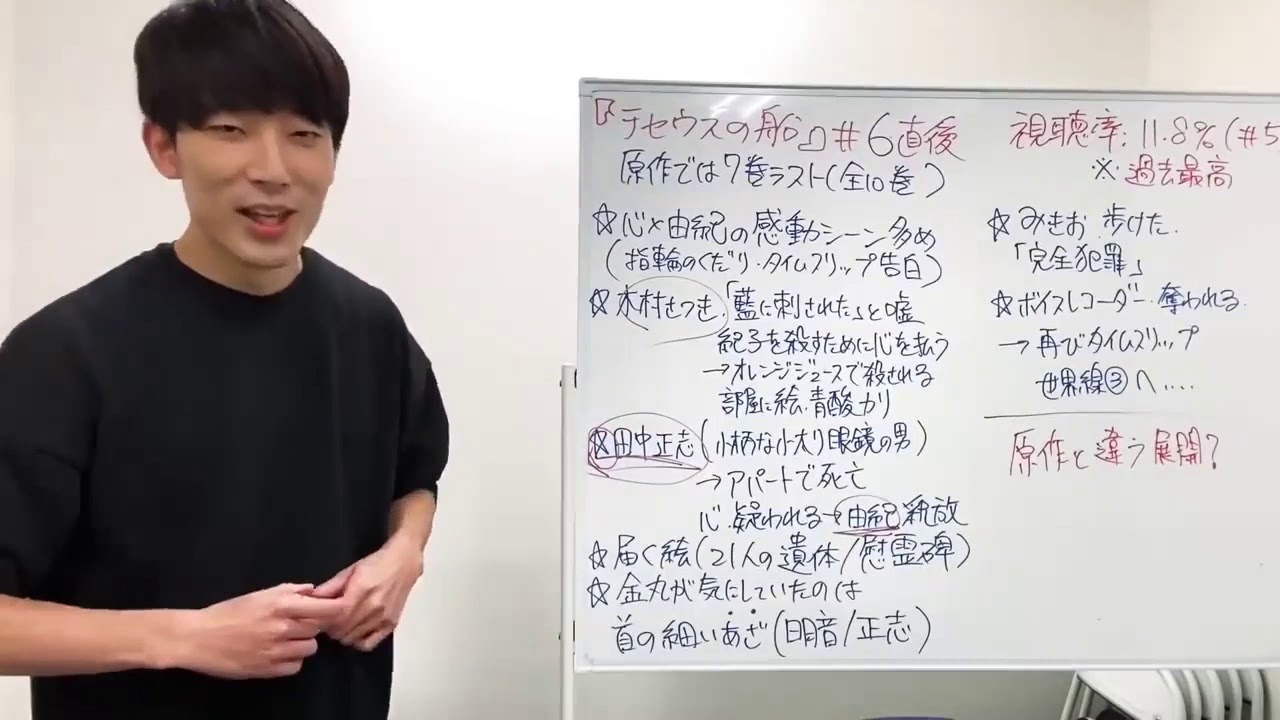 『テセウスの船』#6直後
原作では7巻ラスト(全10巻)
☆心×由紀の感動シーン多め
(指輪のくだり・タイムスリップ告白)
☆木村さつき.「藍に刺された」と嘘
紀子を殺すために心を払う
→オレンジジュースで殺される
部屋に絵.青酸カリ
☆田中正志(小柄な小太り眼鏡の男)
→アパートで死亡
心.疑われる→由紀釈放
☆届く絵(21人の遺体/慰霊碑)
☆金丸が気にしていたのは
首の細いあざ(明音/正志)
視聴率:11.8%(#5
※過去最高
☆みきお 歩けた.
「完全犯罪」
☆ボイスレコーダー.奪われる.
→再びタイムスリップ
世界線③へ....
原作と違う展開?